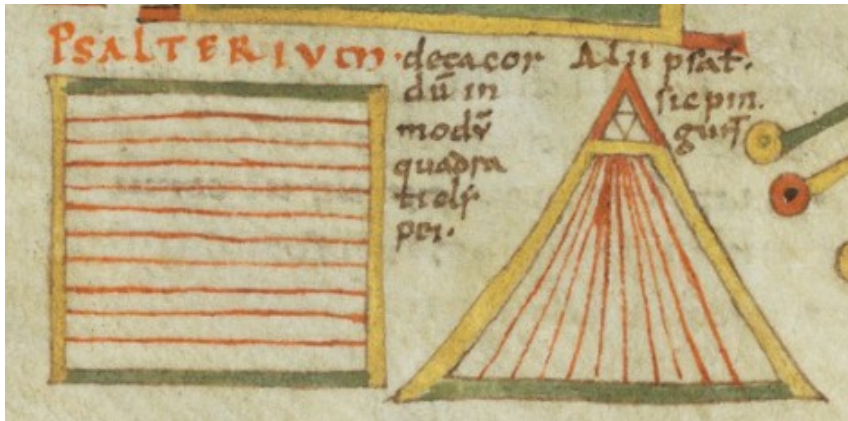 PSALTERIUM · decacor
dū in
modū
quadra
ti cly
pei ·
Alii psał ·
sic pin
gun̄t